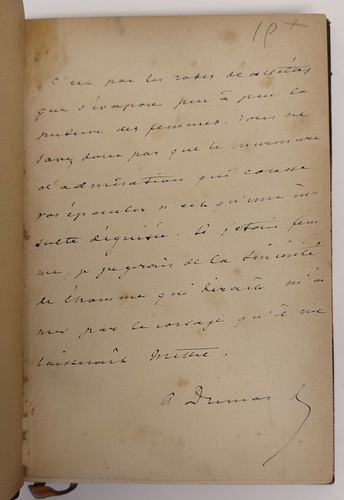 10 +
C'est par les robes décolletées
que s'évapore peu à peu la
pudeur des femmes. Vous ne
savez donc pas que le murmure
d'admiration qui caresse
vos épaules n'est qu'une in-
sulte déguisée. Si j'étais fem-
me, je jugerais de la sincérité
de l'homme qui dirait m'ai
mer par le corsage qu'il me
laisserait mettre.
A Dumas f